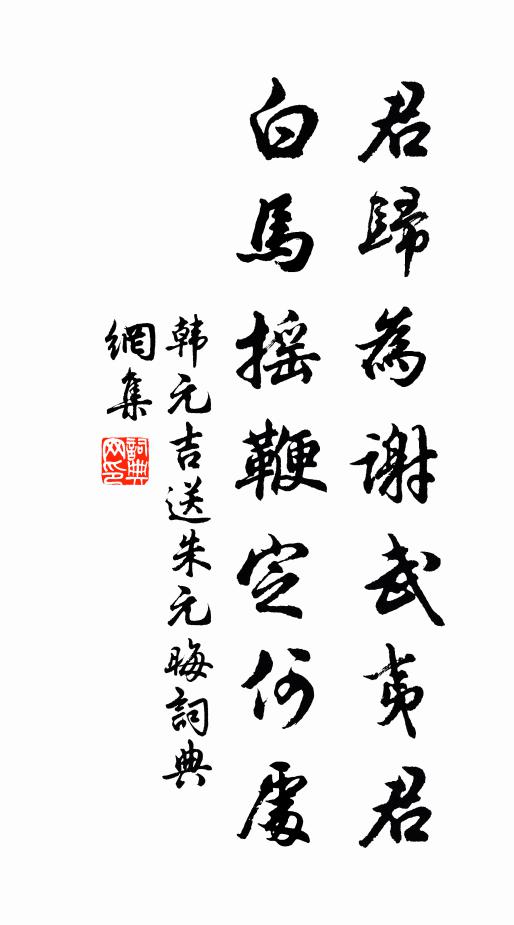 君歸為謝武夷君
白馬摇鞭定何處
韩元吉送朱元晦詞典
網集
詞典
网印